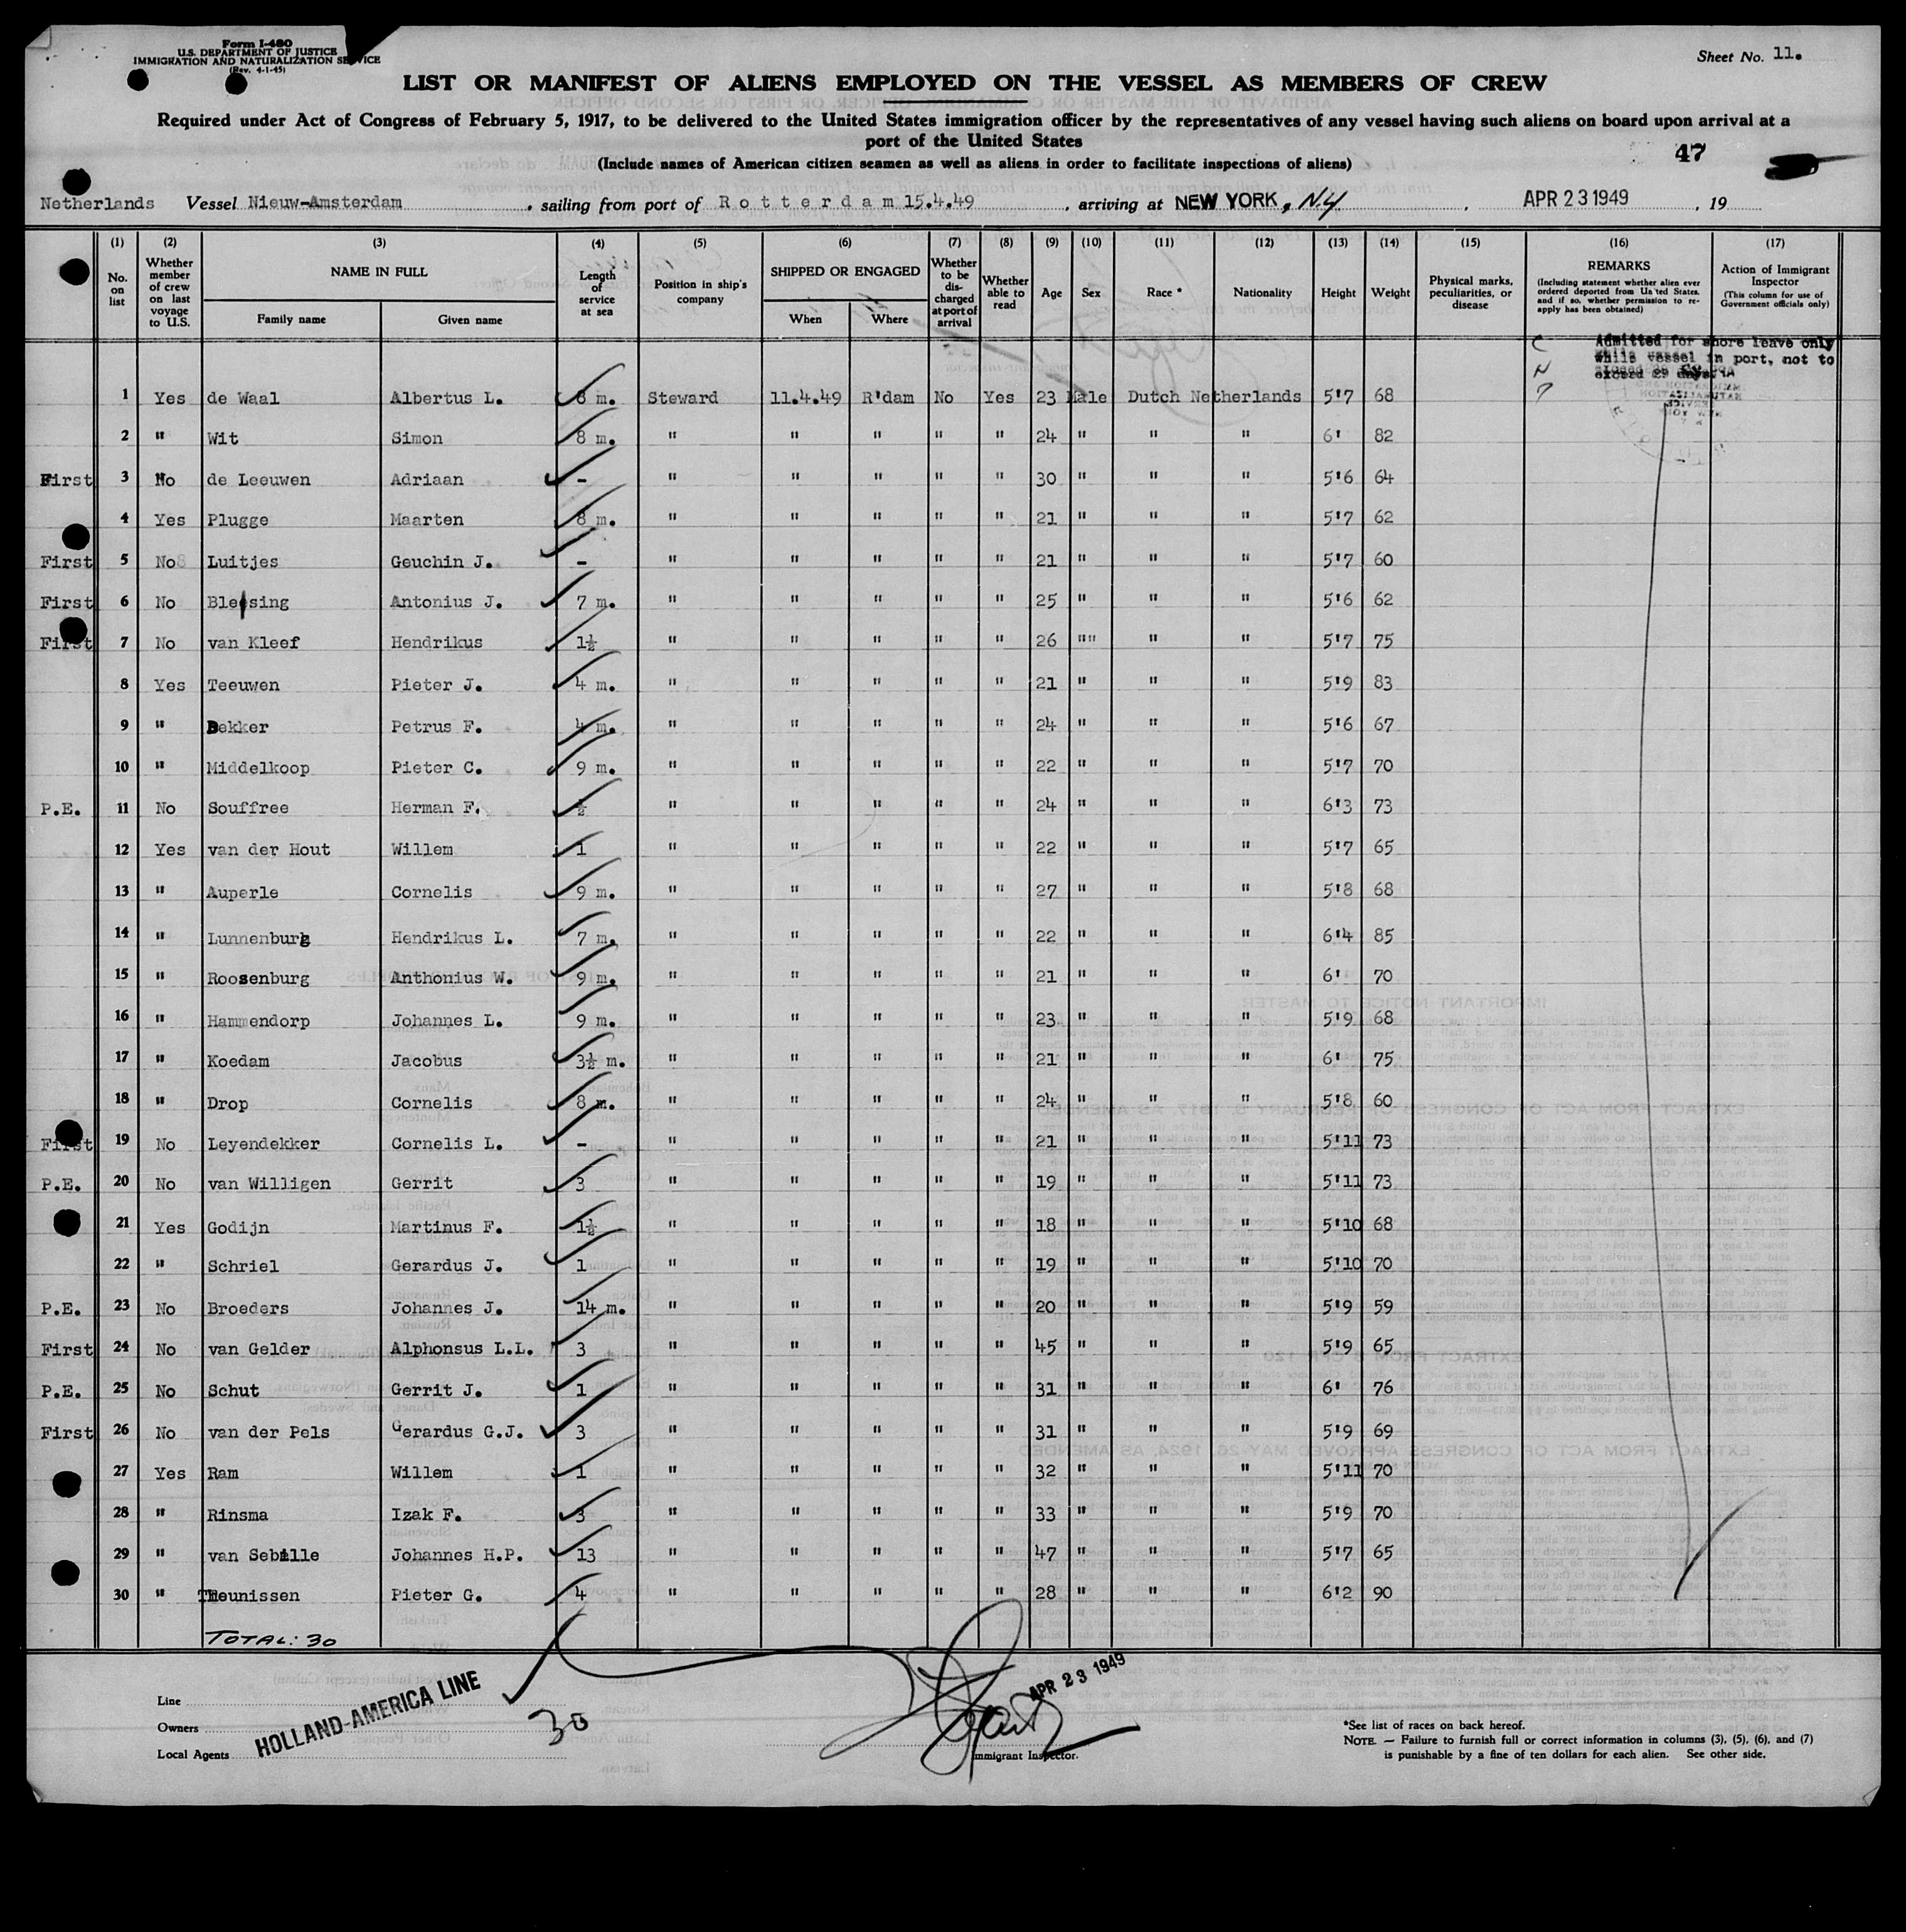 Form I-480
U.S. DEPARTMENT OF JUSTICE
IMMIGRATION AND NATURALIZATION SERVICE
(Rev. 4-1-45)
Sheet No. 11.
LIST OR MANIFEST OF ALIENS EMPLOYED ON THE VESSEL AS MEMBERS OF CREW
Required under Act of Congress of February 5, 1917, to be delivered to the United States immigration officer by the representatives of any vessel having such aliens on board upon arrival at a
port of the United States
(Include names of American citizen seamen as well as aliens in order to facilitate inspections of aliens)
47
Netherlands Vessel Nieuw-Amsterdam, sailing from port of Rotterdam 15.4.49, arriving at NEW YORK, N.Y, APR 23 1949, 19
(1) (2) (3) (4) (5) (6) (7) (8) (9) (10) (11) (12) (13) (14) (15) (16) (17)
No. on list
Whether member of crew on last voyage to U.S.
NAME IN FULL
Family name Given name
Length of service at sea
Position in ship's company
SHIPPED OR ENGAGED
When Where
Whether to be discharged at port of arrival
Whether able to read
Age Sex Race * Nationality Height Weight
Physical marks, peculiarities, or disease
REMARKS
(Including statement whether alien ever ordered deported from United States, and if so, whether permission to re-apply has been obtained)
Action of Immigrant Inspector
(This column for use of Government officials only)
Admitted for shore leave only
while vessel in port, not to
exceed 29 days.
1 Yes de Waal Albertus L. 8 m. Steward 11.4.49 R'dam No Yes 23 Male Dutch Netherlands 5'7 68
2 " Wit Simon 8 m. " " " " " 24 " " " 6' 82
First 3 No de Leeuwen Adriaan - " " " " " 30 " " " 5'6 64
4 Yes Plugge Maarten 8 m. " " " " " 21 " " " 5'7 62
First 5 No Luitjes Geuchin J. - " " " " " 21 " " " 5'7 60
First 6 No Blessing Antonius J. 7 m. " " " " " 25 " " " 5'6 62
First 7 No van Kleef Hendrikus 1½ " " " " " 26 "" " " 5'7 75
8 Yes Teeuwen Pieter J. 4 m. " " " " " 21 " " " 5'9 83
9 " Bekker Petrus F. 4 m. " " " " " 24 " " " 5'6 67
10 " Middelkoop Pieter C. 9 m. " " " " " 22 " " " 5'7 70
P.E. 11 No Souffree Herman F. ½ " " " " " 24 " " " 6'3 73
12 Yes van der Hout Willem 1 " " " " " 22 " " " 5'7 65
13 " Auperle Cornelis 9 m. " " " " " 27 " " " 5'8 68
14 " Lunnenburg Hendrikus L. 7 m. " " " " " 22 " " " 6'4 85
15 " Roosenburg Anthonius W. 9 m. " " " " " 21 " " " 6' 70
16 " Hammendorp Johannes L. 9 m. " " " " " 23 " " " 5'9 68
17 " Koedam Jacobus 3½ m. " " " " " 21 " " " 6' 75
18 " Drop Cornelis 8 m. " " " " " 24 " " " 5'8 60
First 19 No Leyendekker Cornelis L. - " " " " " 21 " " " 5'11 73
P.E. 20 No van Willigen Gerrit 3 " " " " " 19 " " " 5'11 73
21 Yes Godijn Martinus F. 1½ " " " " " 18 " " " 5'10 68
22 " Schriel Gerardus J. 1 " " " " " 19 " " " 5'10 70
P.E. 23 No Broeders Johannes J. 14 m. " " " " " 20 " " " 5'9 59
First 24 No van Gelder Alphonsus L.L. 3 " " " " " 45 " " " 5'9 65
P.E. 25 No Schut Gerrit J. 1 " " " " " 31 " " " 6' 76
First 26 No van der Pels Gerardus G.J. 3 " " " " " 31 " " " 5'9 69
27 Yes Ram Willem 1 " " " " " 32 " " " 5'11 70
28 " Rinsma Izak F. 3 " " " " " 33 " " " 5'9 70
29 " van Sebille Johannes H.P. 13 " " " " " 47 " " " 5'7 65
30 " Theunissen Pieter G. 4 " " " " " 28 " " " 6'2 90
TOTAL: 30
Line
Owners
Local Agents
HOLLAND-AMERICA LINE
30
APR 23 1949
Immigrant Inspector.
*See list of races on back hereof.
NOTE. — Failure to furnish full or correct information in columns (3), (5), (6), and (7)
is punishable by a fine of ten dollars for each alien. See other side.